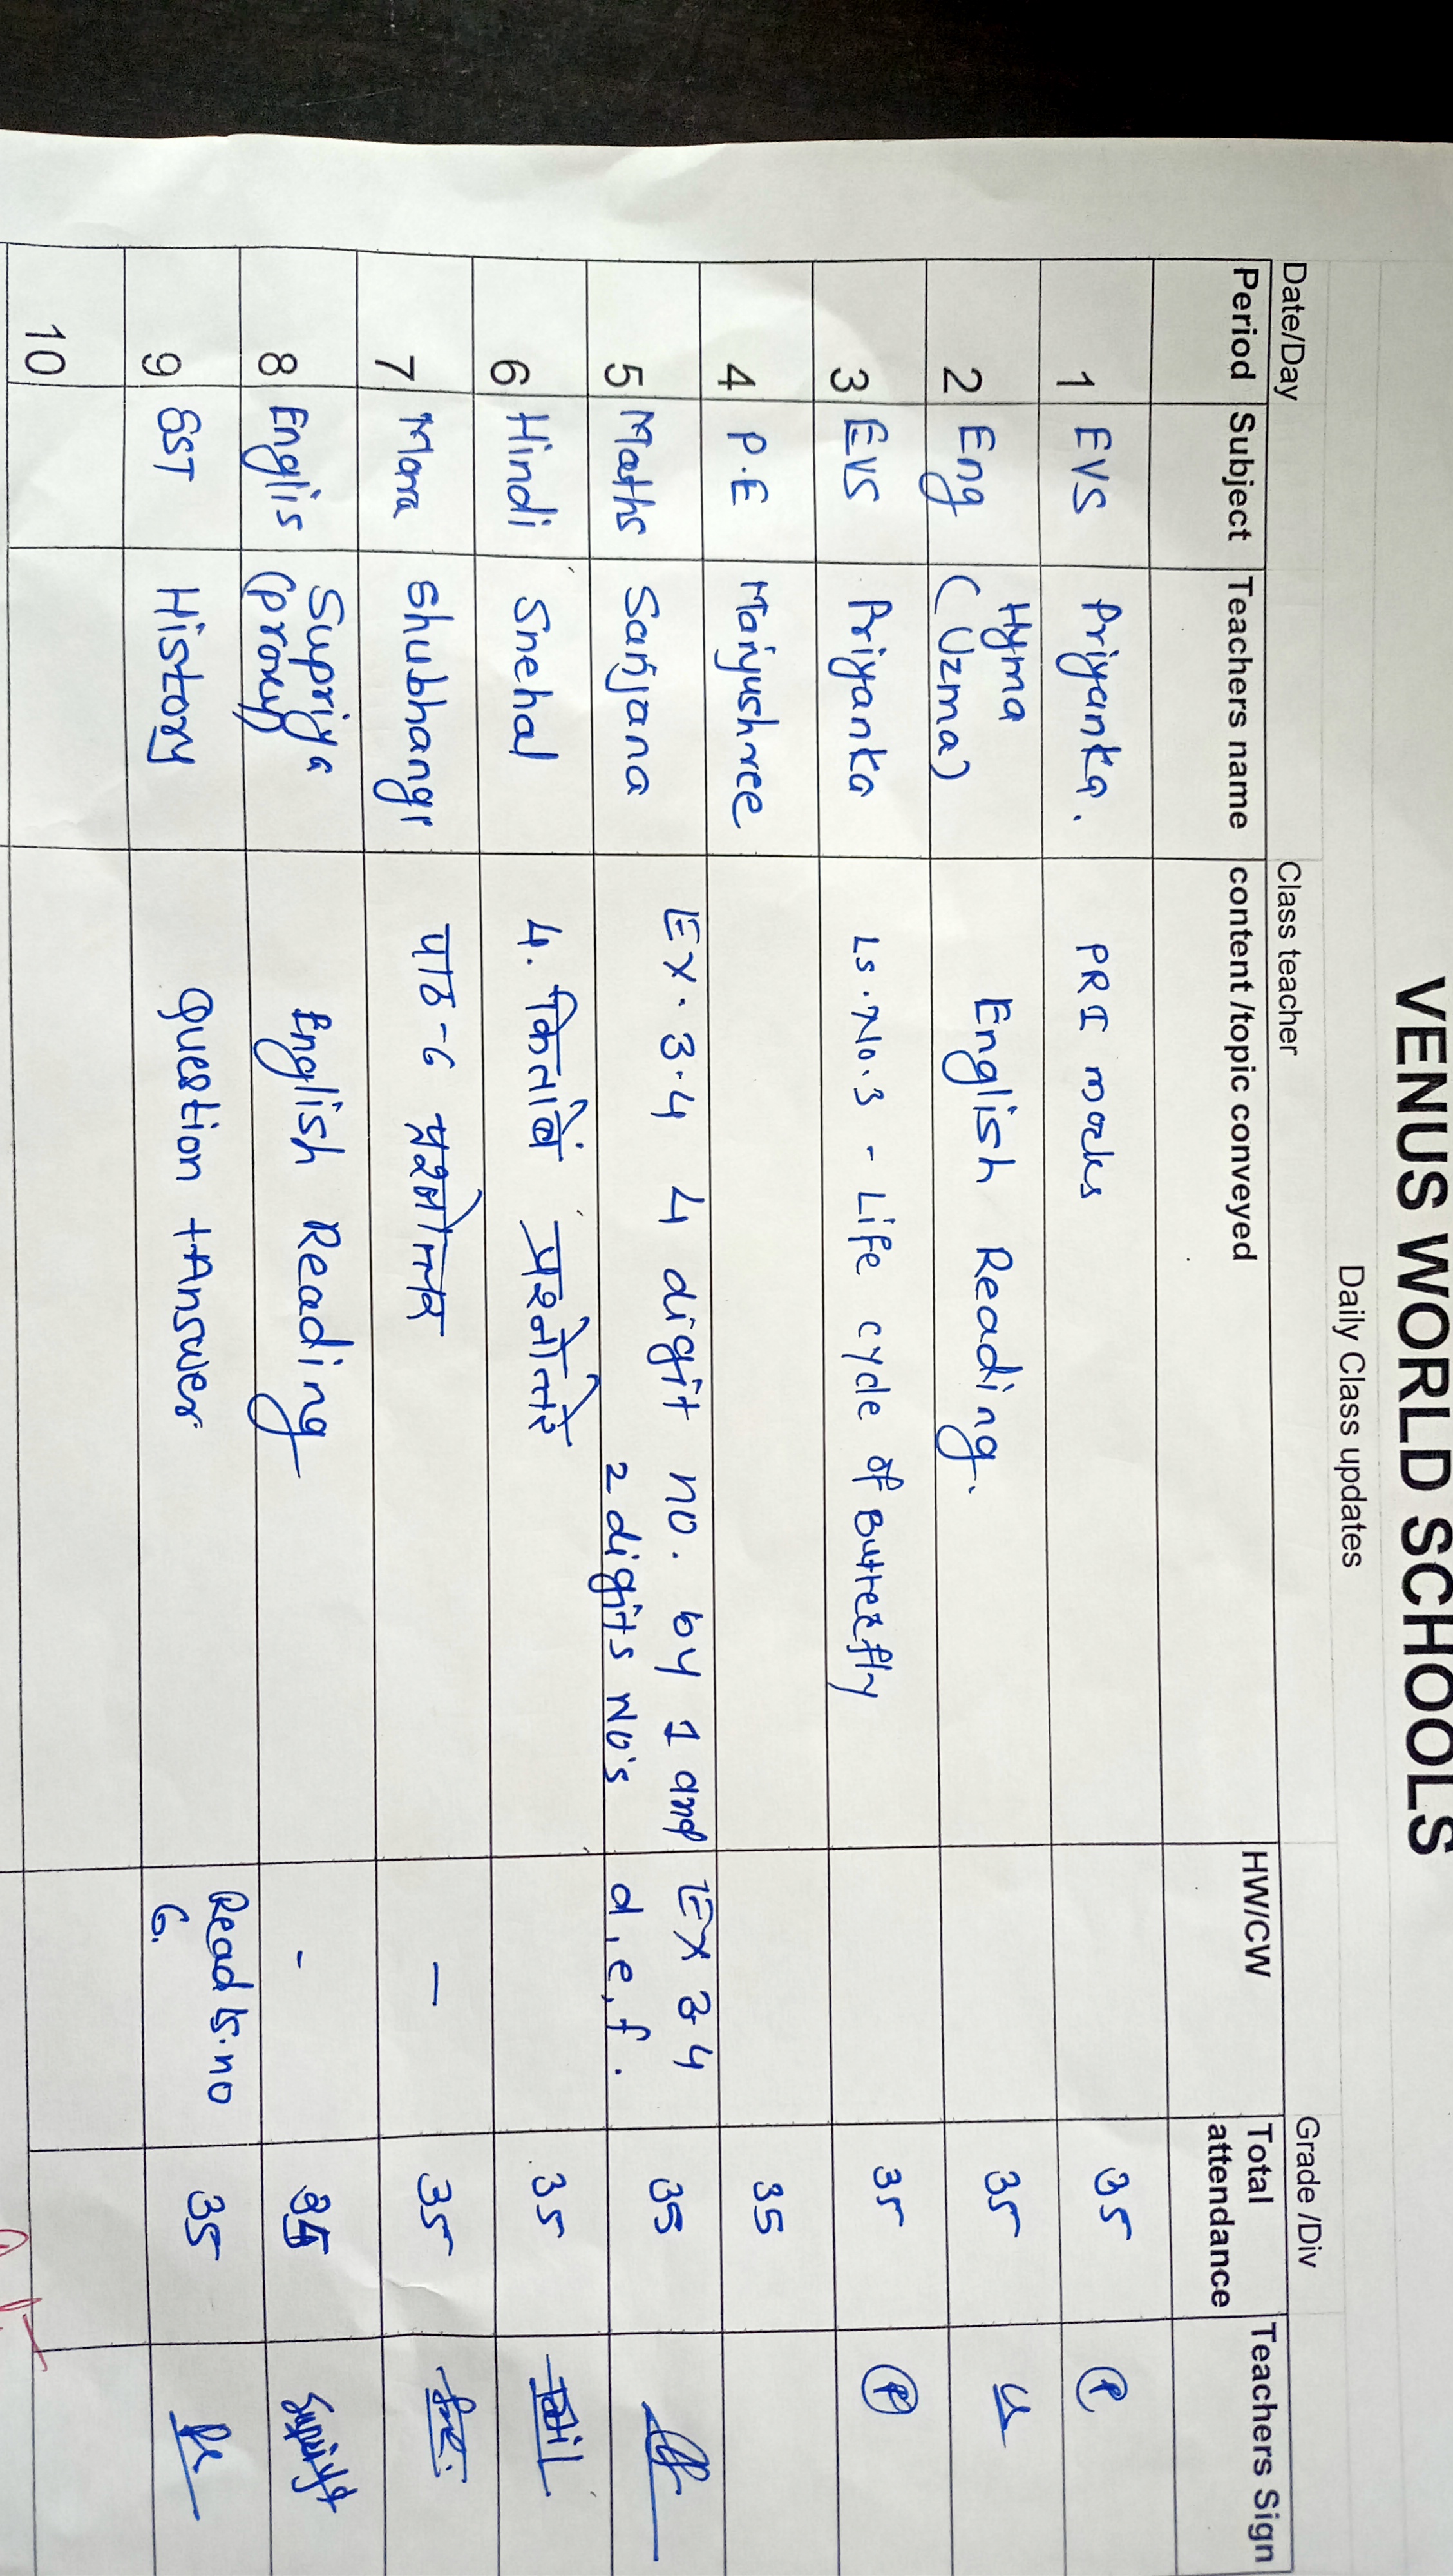 VENUS WORLD SCHOOLS
Daily Class updates
Date/Day Class teacher Grade /Div
Period Subject Teachers name content /topic conveyed HW/CW Total attendance Teachers Sign
1 EVS Priyanka. PRI marks 35 P
2 Eng Hyma (Uzma) English Reading. 35
3 EVS Priyanka Ls.No.3 - Life cycle of Butterfly 35 P
4 P.E Manjushree 35
5 Maths Sanjana Ex. 3.4 4 digit no. by 1 and Ex 3.4 35
2 digits No's d, e, f.
6 Hindi Snehal 4. किताबें प्रश्नोत्तरे 35
7 Mara Shubhangi पाठ-6 प्रश्नोत्तर — 35
8 Englis Supriya (proxy) English Reading - 35 Supriya
9 SST History Question +Answer Read ls.no 6. 35
10